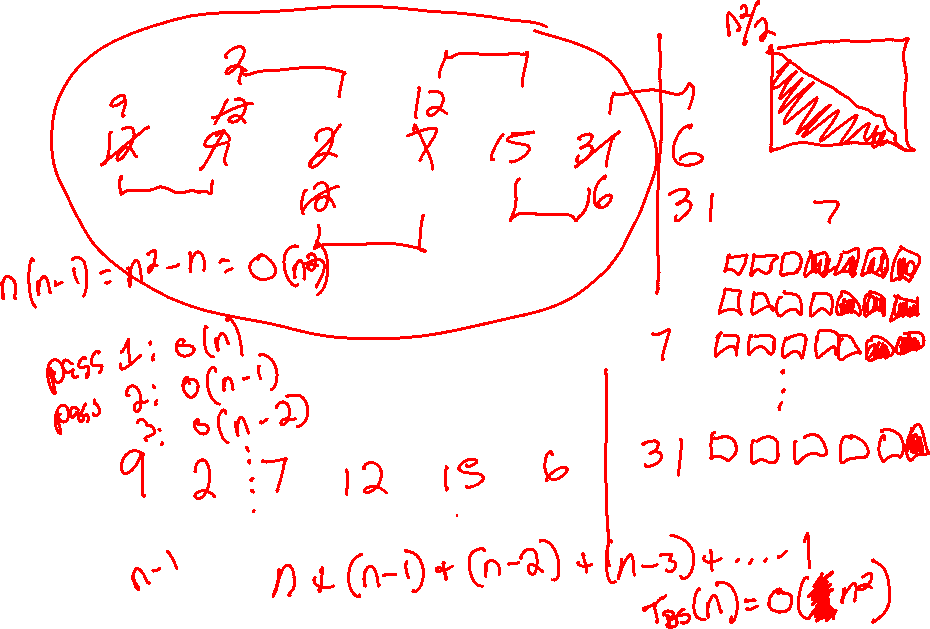 n²/2
2
9 12 12
12 9 2 7 15 31 6
12 6 31 7
n(n-1) = n²-n = O(n²)
pass 1: O(n)
7
pass 2: O(n-1)
3: O(n-2)
9 2 7 12 15 6 31
n-1
n + (n-1) + (n-2) + (n-3) + ..... 1
T_BS(n) = O(n²)